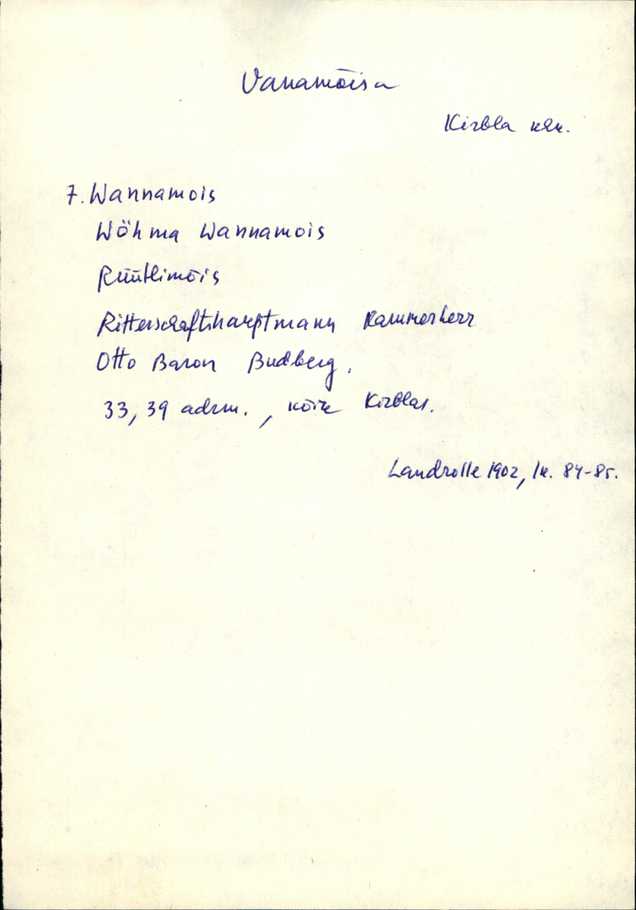 Vanamõisa
Kirbla khk.
7. Wannamois
Wöhma Wannamois
Rüütlimõis
Ritterschaftshauptmann Kammerherr
Otto Baron Budberg.
33,39 adrm., kõik Kirblas.
Landrolle 1902, lk. 84-85.